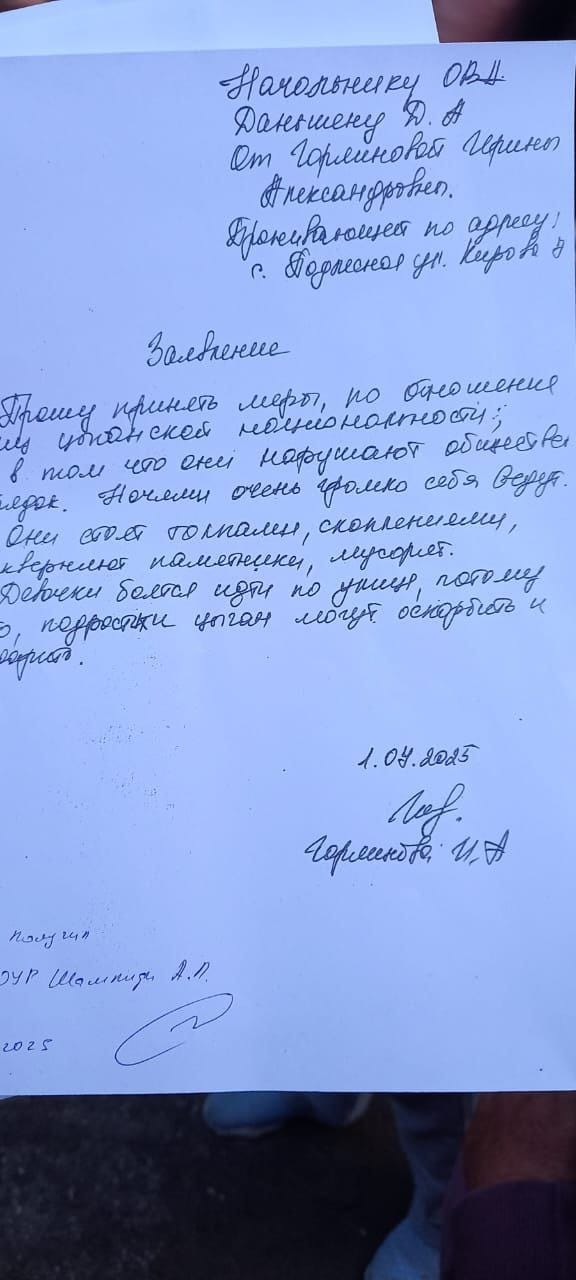 Начальнику ОВД
Даньшену Д. А
От Горлиновой Ирины
Александровны.
Проживающей по адресу:
с. Подлесное ул. Кирова
Заявление
Прошу принять меры, по отношение
лиц цыганской национальности;
в том что они нарушают обществен
рядок. Ночями очень громко себя ведут.
Они стоят толпами, скоплениями,
скверняют памятники, мусорят.
Девочки боятся идти по улици, потому
о, подростки цыган могут оскорбить и
1.07.2025
Горлинова И. А
Получил
ОУР Шалпиди А.П.
2025